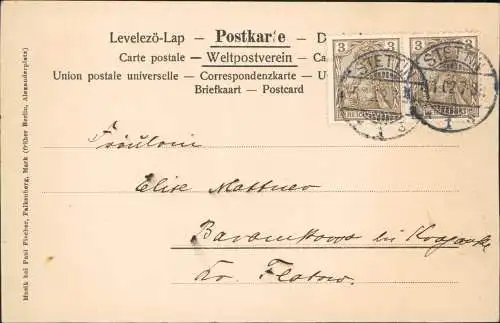 Levelezö-Lap — Postkarte — D
Carte postale — Weltpostverein — Ca
Union postale universelle — Correspondenzkarte — U
Briefkaart — Postcard
3 3 3 3
STETTIN
1
Fräulein
Elise Mattner
bei
Kr. Flatow.
Musik bei Paul Fischer, Falkenberg, Mark (früher Berlin, Alexanderplatz)